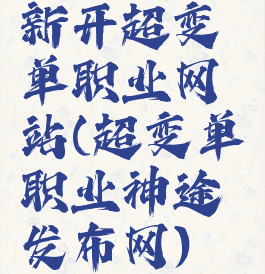 新开超变
单职业网
站(超变单
职业神途
发布网)